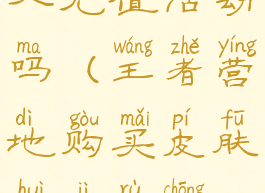 ma wáng zhě yíng
吗（王者营
dì gòu mǎi pí fū
地购买皮肤
huì jì rù chōng